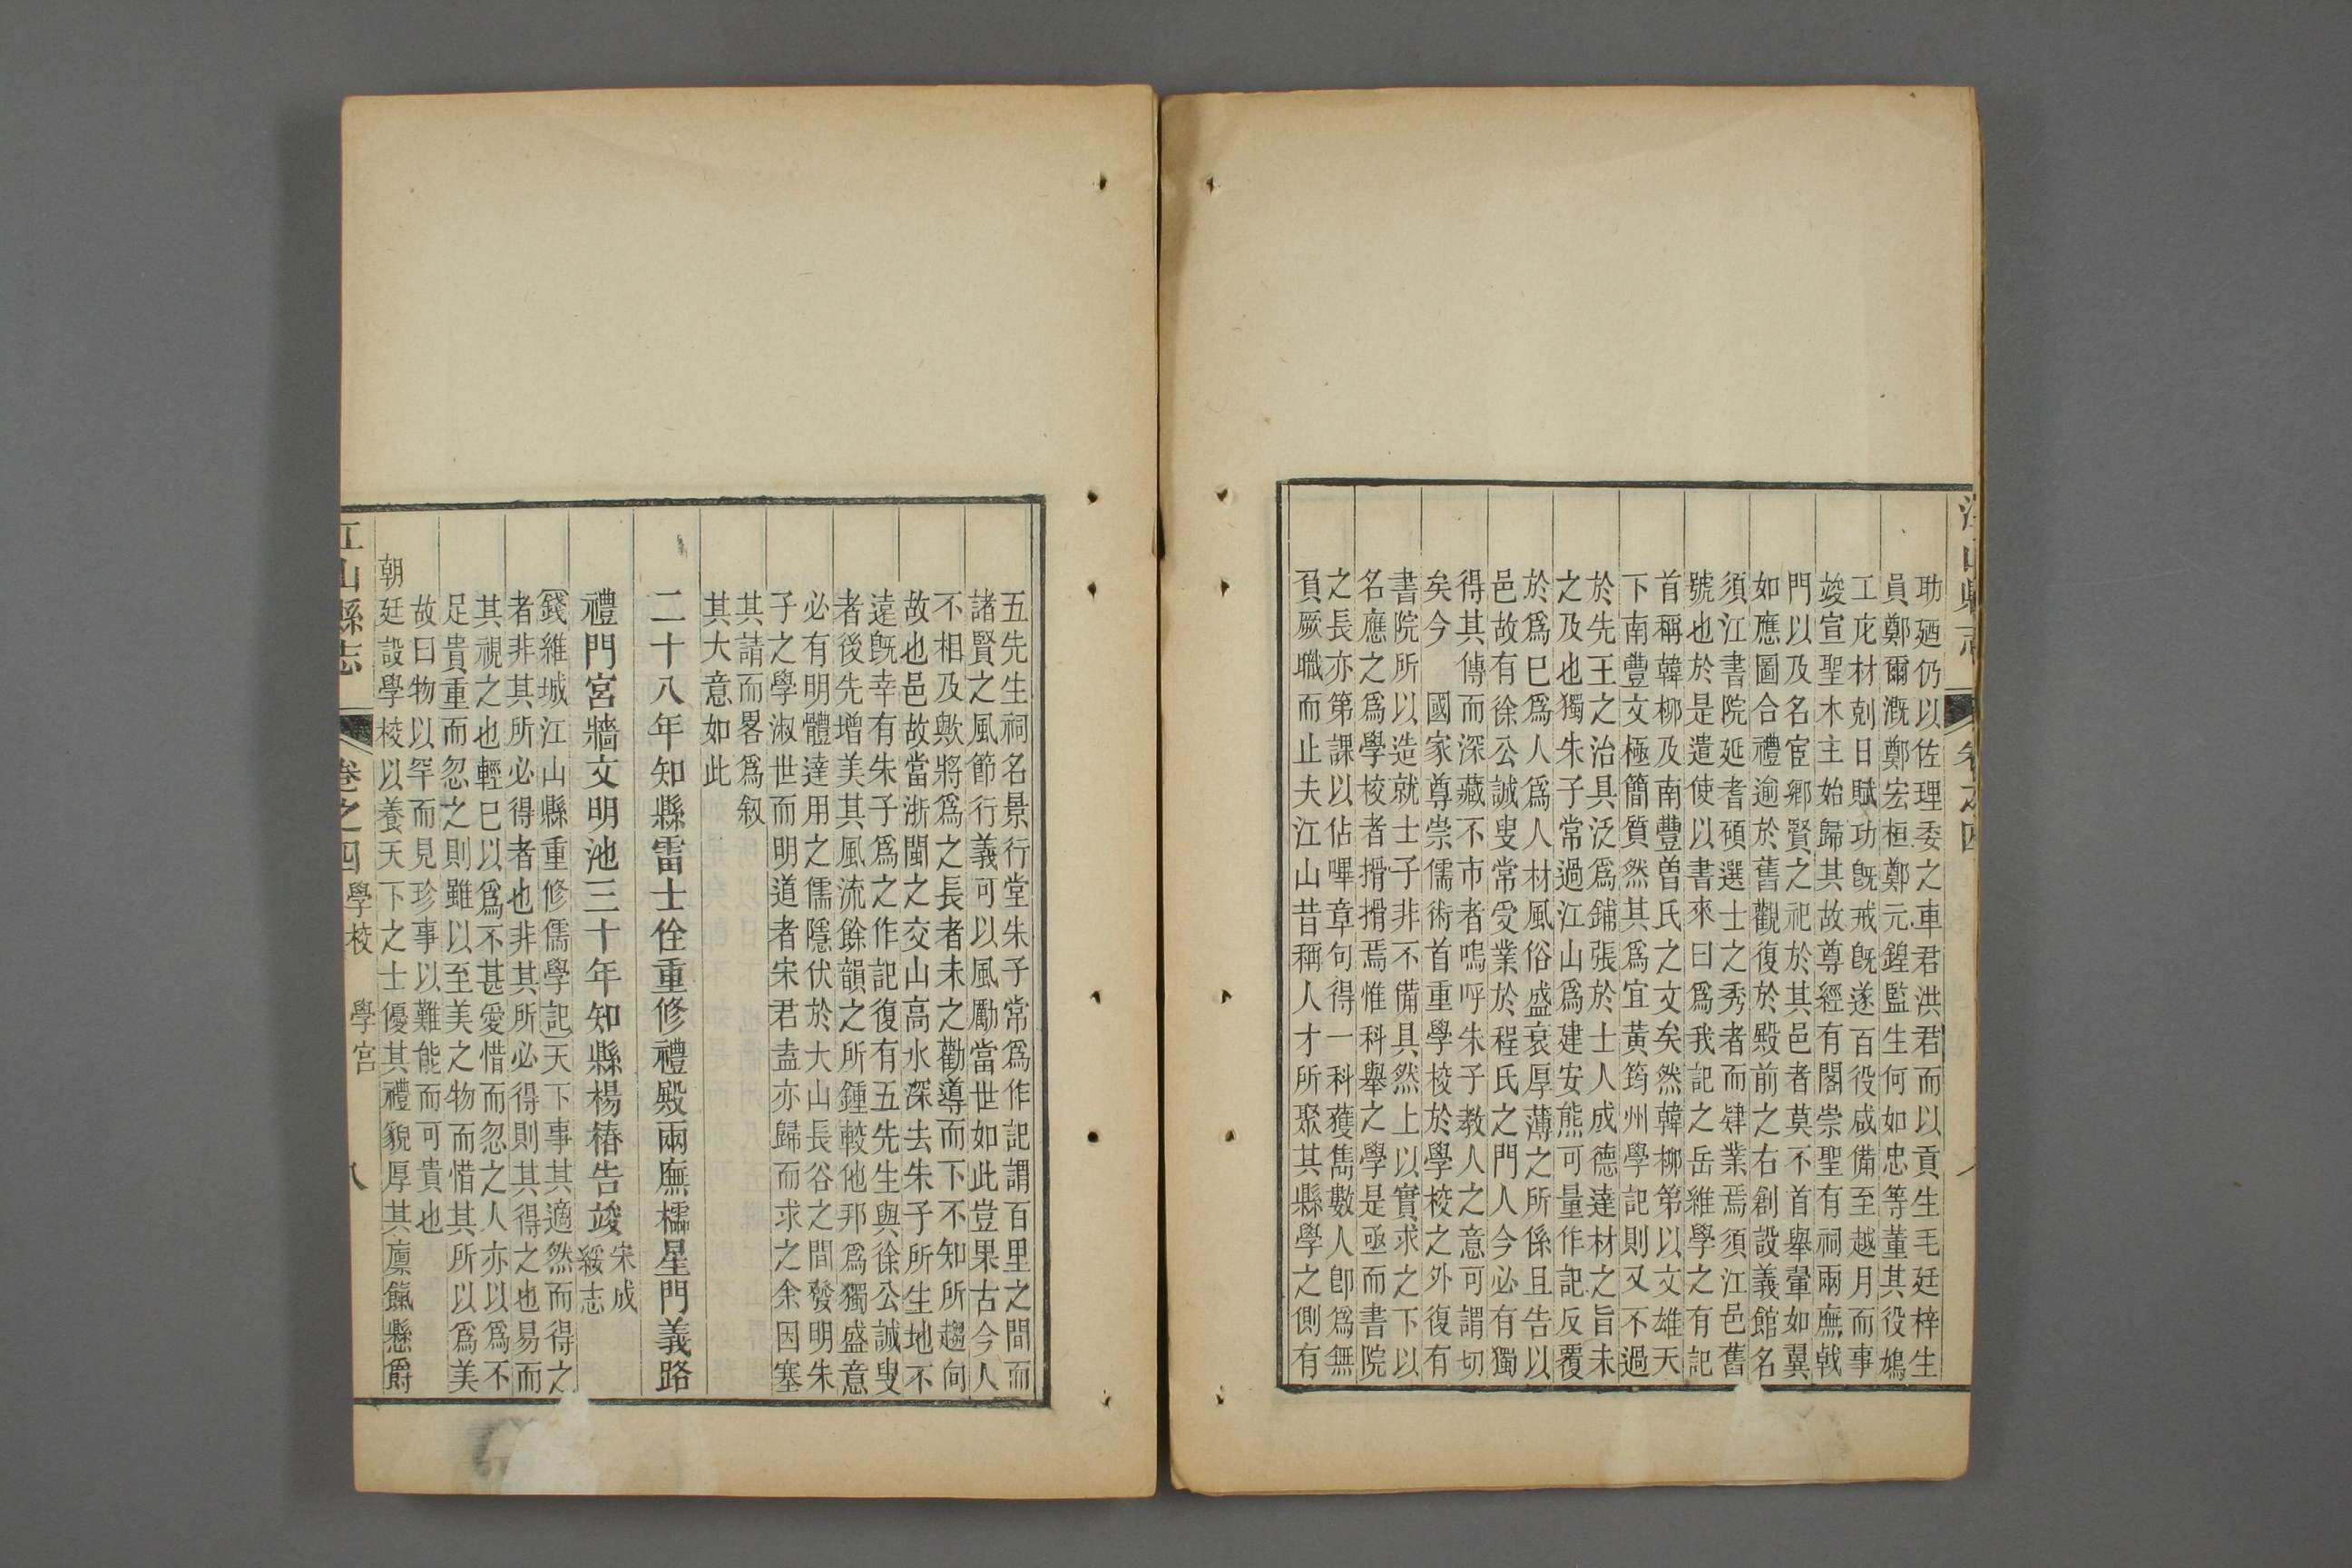 江山縣志
卷之四
助廼仍以佐理委之車君洪君而以貢生毛廷梓生
員鄭爾漑鄭宏桓鄭元鍠監生何如忠等董其役鳩
工庀材剋日賦功旣戒旣遂百役咸備至越月而事
竣宣聖木主始歸其故尊經有閣崇聖有祠兩廡戟
門以及名宦鄉賢之祀於其邑者莫不首舉鞏如翼
如應圖合禮逾於舊觀復於殿前之右創設義館名
須江書院延耆碩選士之秀者而肄業焉須江邑舊
號也於是遣使以書來曰爲我記之岳維學之有記
首稱韓柳及南豐曽氏之文矣然韓柳第以文雄天
下南豐文極簡質然其爲宜黃筠州學記則又不過
於先王之治具泛爲鋪張於士人成德達材之旨未
之及也獨朱子常過江山爲建安熊可量作記反覆
於爲巳爲人爲人材風俗盛衰厚薄之所係且告以
邑故有徐公誠叟常受業於程氏之門人今必有獨
得其傳而深藏不市者嗚呼朱子教人之意可謂切
矣今　國家尊崇儒術首重學校於學校之外復有
書院所以造就士子非不備具然上以實求之下以
名應之爲學校者搰搰焉惟科舉之學是亟而書院
之長亦第課以佔嗶章句得一科獲雋數人卽爲無
負厥職而止夫江山昔稱人才所聚其縣學之側有
五先生祠名景行堂朱子常爲作記謂百里之間而
諸賢之風節行義可以風勵當世如此豈果古今人
不相及歟將爲之長者未之勸導而下不知所趨向
故也邑故當浙閩之交山高水深去朱子所生地不
遠旣幸有朱子爲之作記復有五先生與徐公誠叟
者後先增美其風流餘韻之所鍾較他邦爲獨盛意
必有明體達用之儒隱伏於大山長谷之間發明朱
子之學淑世而明道者宋君盍亦歸而求之余因塞
其請而畧爲叙
其大意如此
二十八年知縣雷士佺重修禮殿兩廡櫺星門義路
禮門宮牆文明池三十年知縣楊椿告竣宋成
綏志
錢維城江山縣重修儒學記天下事其適然而得之
者非其所必得者也非其所必得則其得之也易而
其視之也輕巳以爲不甚愛惜而忽之人亦以爲不
足貴重而忽之則雖以至美之物而惜其所以爲美
故曰物以罕而見珍事以難能而可貴也
朝廷設學校以養天下之士優其禮貌厚其廩餼懸爵
江山縣志
卷之四
學校　學宮
八